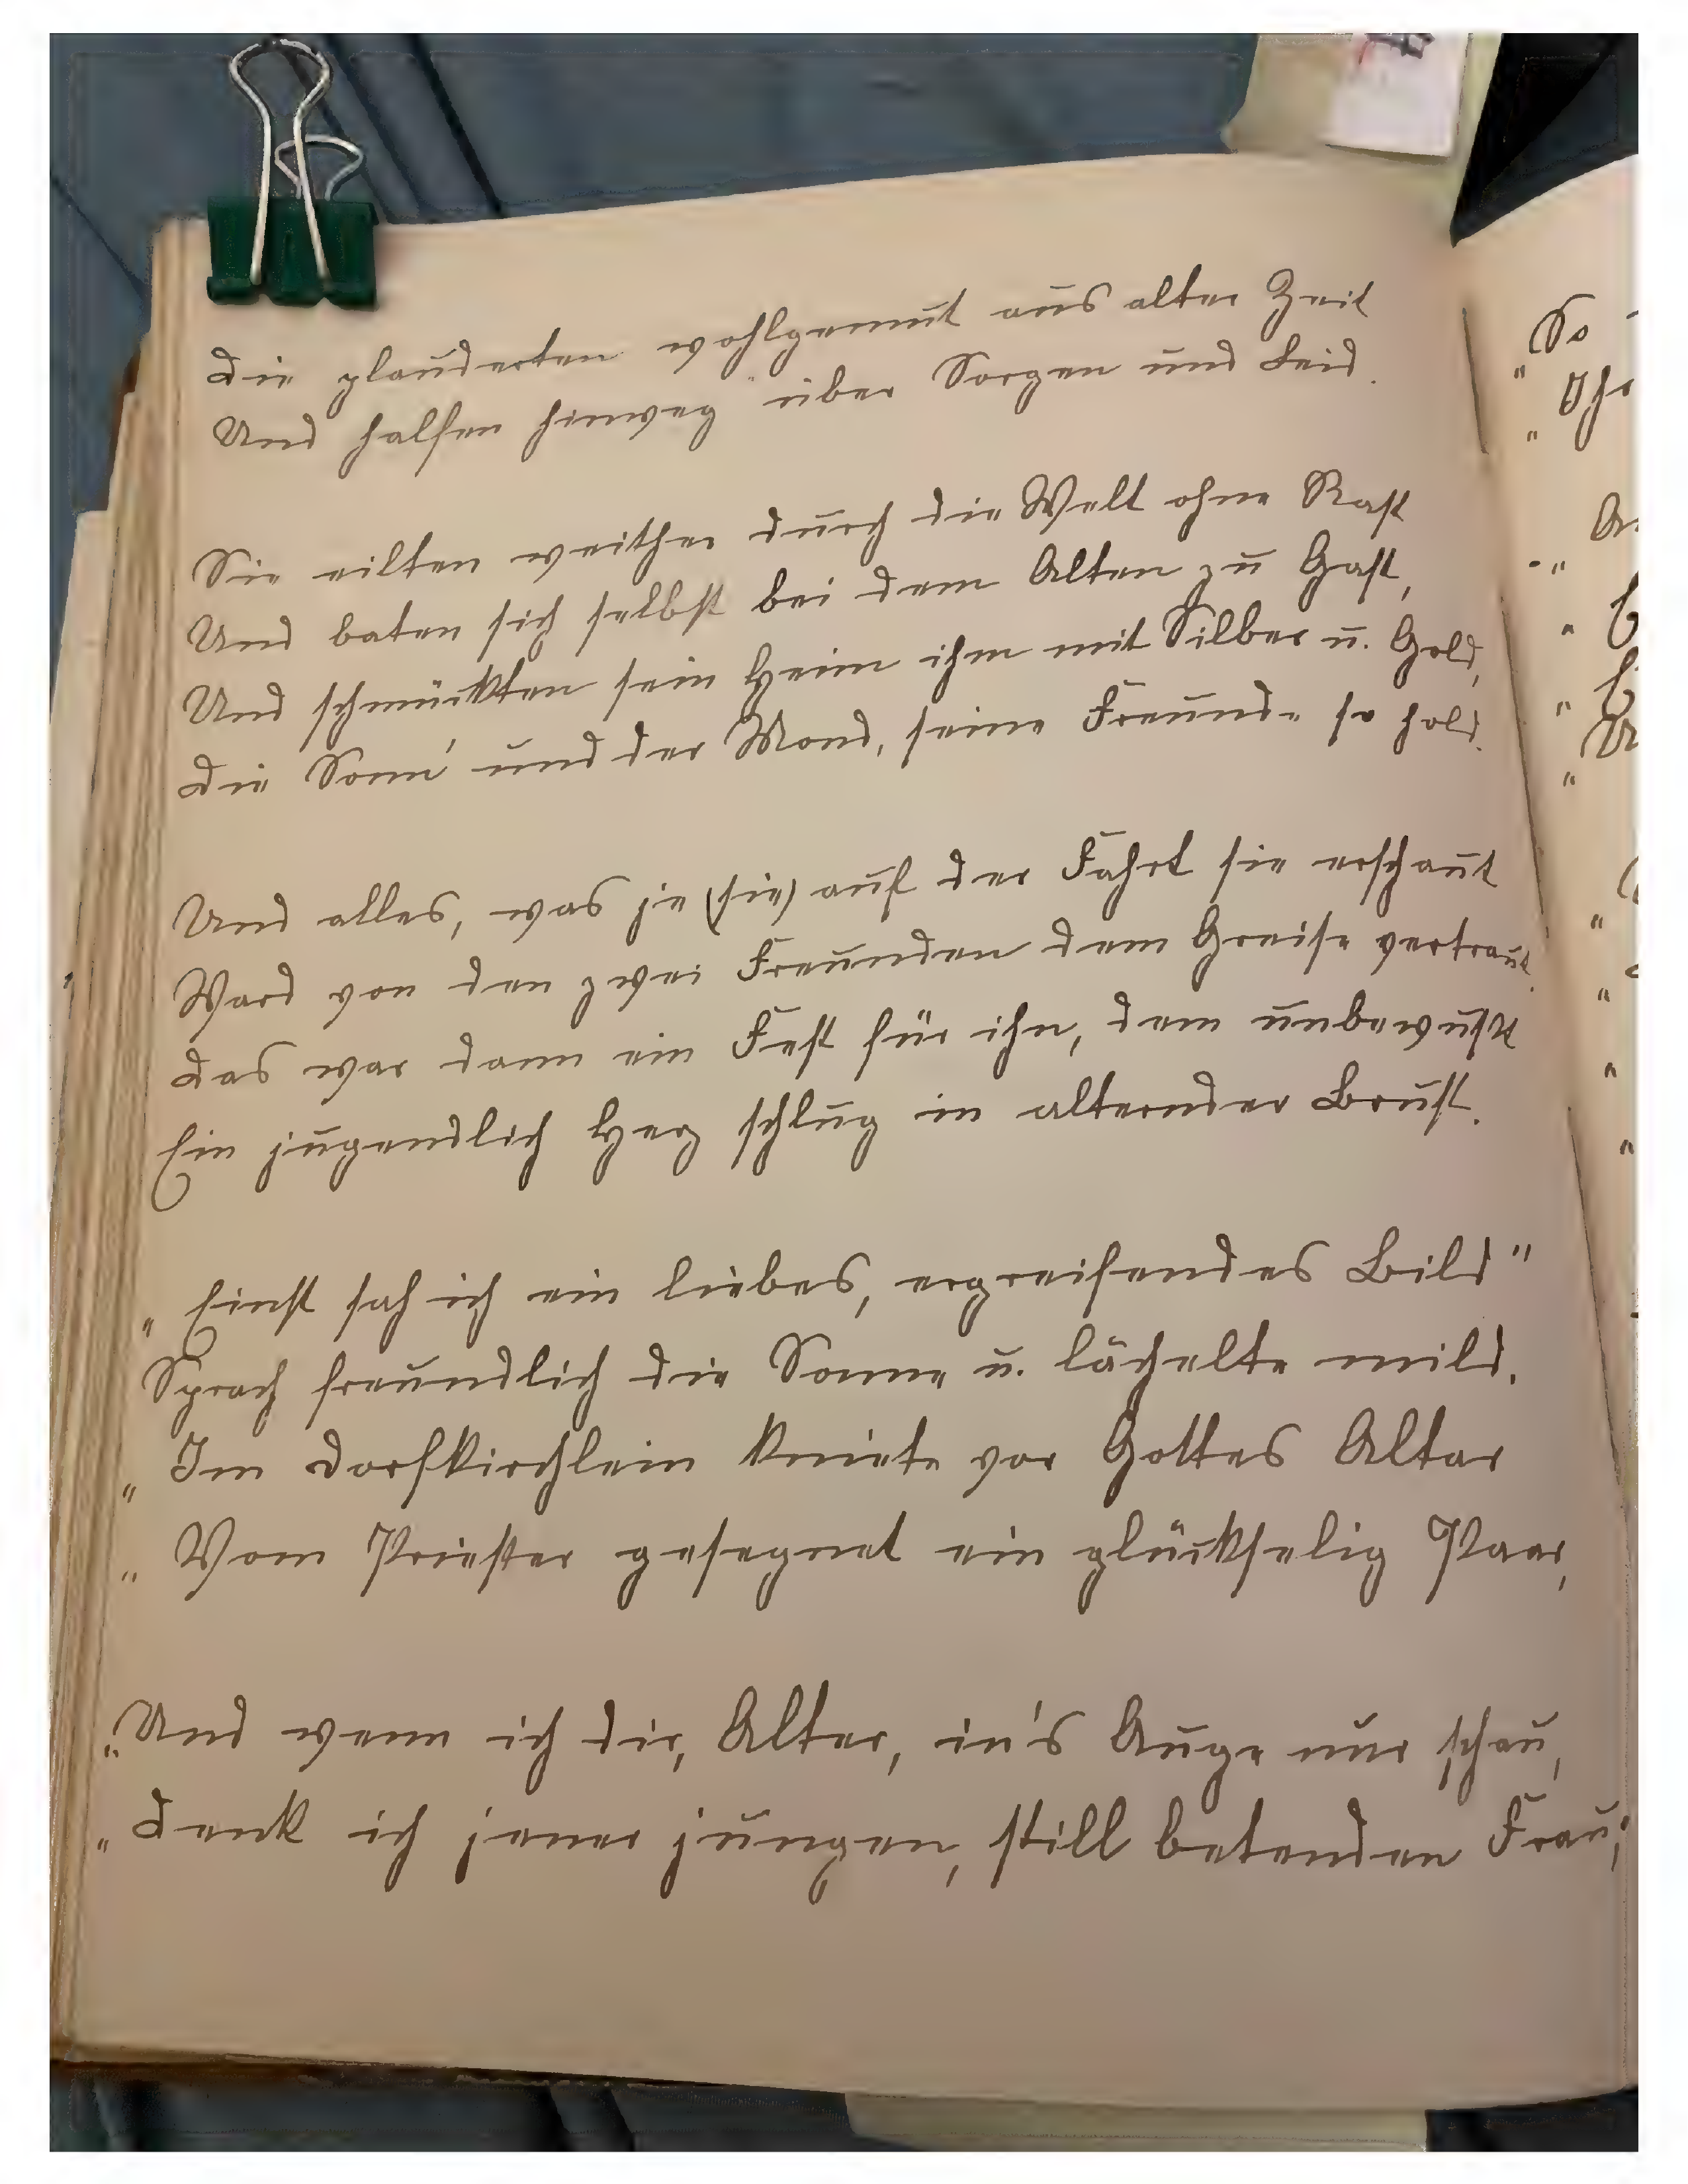 Die plauderten wohlgemut aus alter Zeit
Und halfen hinweg über Sorgen und Leid.
Sie eilten weither durch die Welt ohne Rast
Und baten sich selbst bei dem Alten zu Gast,
Und schmückten sein Heim ihm mit Silber u. Gold,
Die Sonn' und der Mond, seine Freunde so hold.
Und alles, was je (sie) auf der Fahrt sie erschaut
Ward von den zwei Freunden dem Greise vertraut.
Das war dann ein Fest für ihn, dem unbewußt
Ein jugendlich Herz schlug in alternder Brust.
„Einst sah ich ein liebes, ergreifendes Bild"
Sprach freundlich die Sonne u. lächelte mild.
„Im Dorfkirchlein kniete vor Gottes Altar
„Vom Priester gesegnet ein glückselig Paar,
„Und wenn ich dir, Alter, in's Auge nur schau,
„Denk ich jener jungen, still betenden Frau;
„So